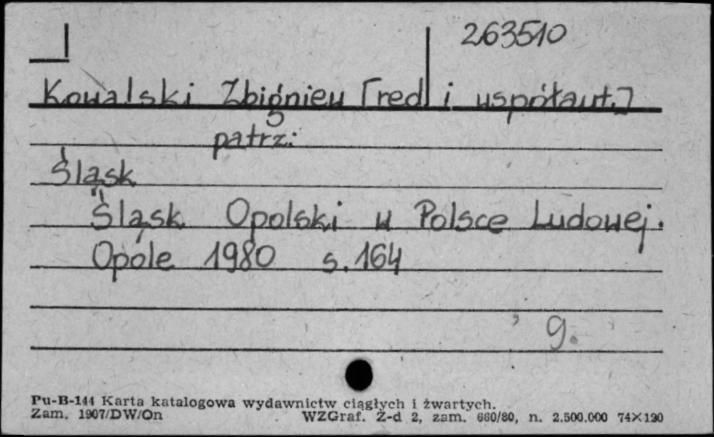 263510
Kowalski Zbigniew [red i współaut.]
patrz:
Śląsk
Śląsk Opolski w Polsce Ludowej.
Opole 1980 s. 164
g.
Pu-B-144 Karta katalogowa wydawnictw ciągłych i zwartych.
Zam. 1907/DW/On WZGraf. Z-d 2, zam. 660/80, n. 2.500.000 74×120